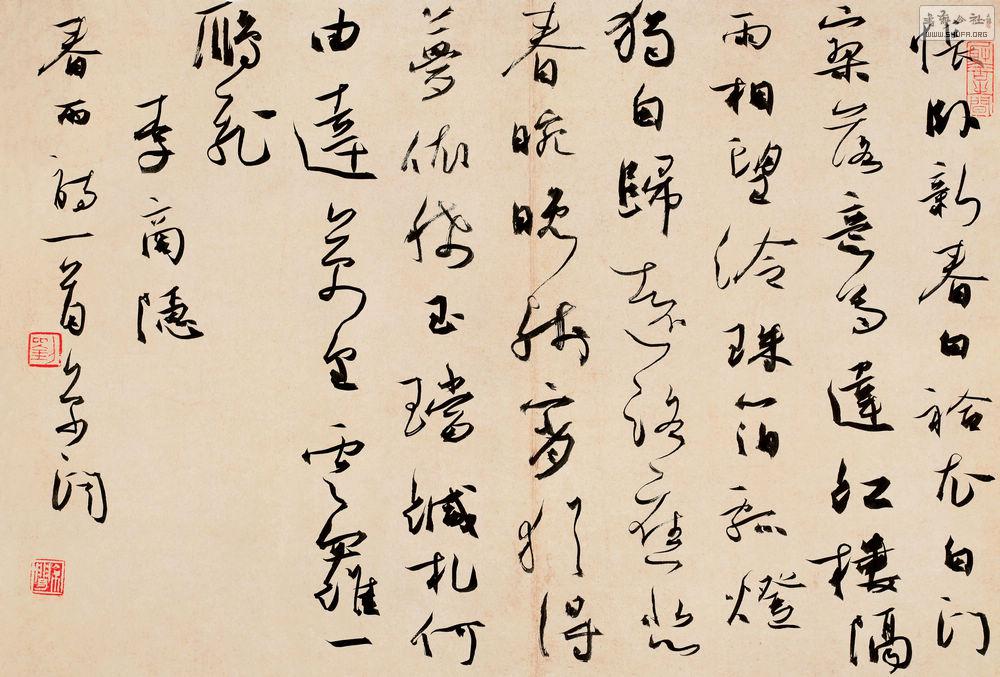 悵卧新春白袷衣白门
寥落意多違红樓隔
雨相望冷珠箔飄燈
独自歸遠路應悲
春晼晚残宵犹得
夢依稀玉璫缄札何
由達萬里雲羅一
鴈飛
李商隱
春雨詩一首
书法公社
WWW.SHUFA.ORG